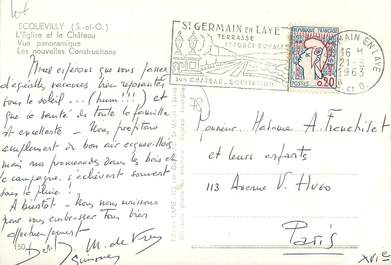 ECQUEVILLY (S.-et-O.)
L'Église et le Château
Vue panoramique
Les nouvelles Constructions
Nous espérons que vous passez
d'agréables vacances bien reposantes
sous le soleil ... (hum!!!) et
que la santé de toute la famille
est excellente - Nous profitons
amplement du bon air
mais nos promenades dans les bois et
la campagne s'achèvent souvent
sous la pluie!
A bientôt - Nous nous unissons
pour vous embrasser tous bien
affectueusement
M. de
ST GERMAIN EN LAYE
TERRASSE
FORÊT ROYALE
SON CHATEAU, EQUITATION
GERMAIN EN LAYE
16 H
21 - 8
1963
REPUBLIQUE FRANCAISE
POSTES
0,20
Monsieur, Madame A.
et leurs enfants
113 Avenue V. Hugo
Paris
XVI